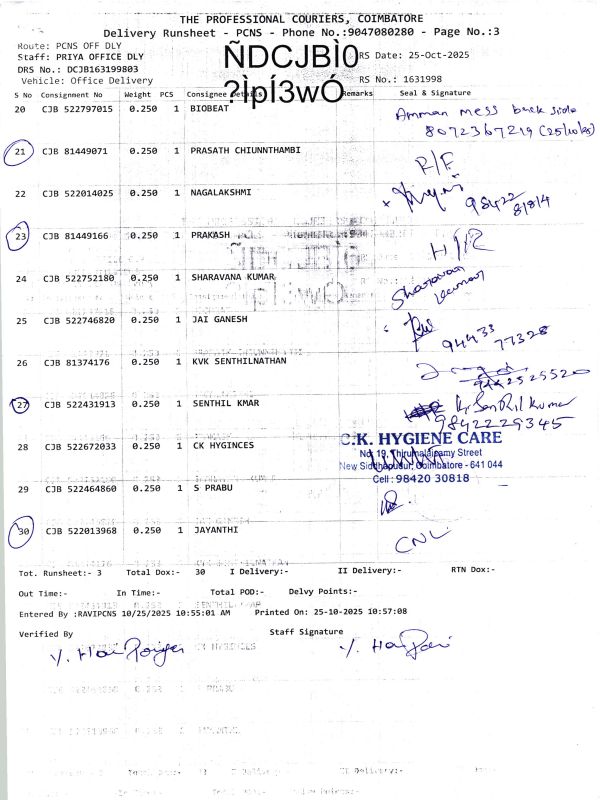 THE PROFESSIONAL COURIERS, COIMBATORE
Delivery Runsheet - PCNS - Phone No.:9047080280 - Page No.:3
Route: PCNS OFF DLY
Staff: PRIYA OFFICE DLY ÑDCJBÌ0 RS Date: 25-Oct-2025
DRS No.: DCJB163199803
Vehicle: Office Delivery ?ÌpÍ3wÓ RS No.: 1631998
S No Consignment No Weight PCS Consignee Details Remarks Seal & Signature
20 CJB 522797015 0.250 1 BIOBEAT Amman mess back side
8072367219 (25/10/25)
21 CJB 81449071 0.250 1 PRASATH CHIUNNTHAMBI R/F
22 CJB 522014025 0.250 1 NAGALAKSHMI 98422
81814
23 CJB 81449166 0.250 1 PRAKASH
24 CJB 522752180 0.250 1 SHARAVANA KUMAR Sharavan
kumar
25 CJB 522746820 0.250 1 JAI GANESH 94433
77328
26 CJB 81374176 0.250 1 KVK SENTHILNATHAN 9442525520
27 CJB 522431913 0.250 1 SENTHIL KMAR K. Senthil kumar
9842229345
28 CJB 522672033 0.250 1 CK HYGINCES C.K. HYGIENE CARE
No: 19, Thirumalaisamy Street
New Siddhapudur, Coimbatore - 641 044
Cell : 98420 30818
29 CJB 522464860 0.250 1 S PRABU
30 CJB 522013968 0.250 1 JAYANTHI CNL
Tot. Runsheet:- 3 Total Dox:- 30 I Delivery:- II Delivery:- RTN Dox:-
Out Time:- In Time:- Total POD:- Delvy Points:-
Entered By :RAVIPCNS 10/25/2025 10:55:01 AM Printed On: 25-10-2025 10:57:08
Verified By Staff Signature